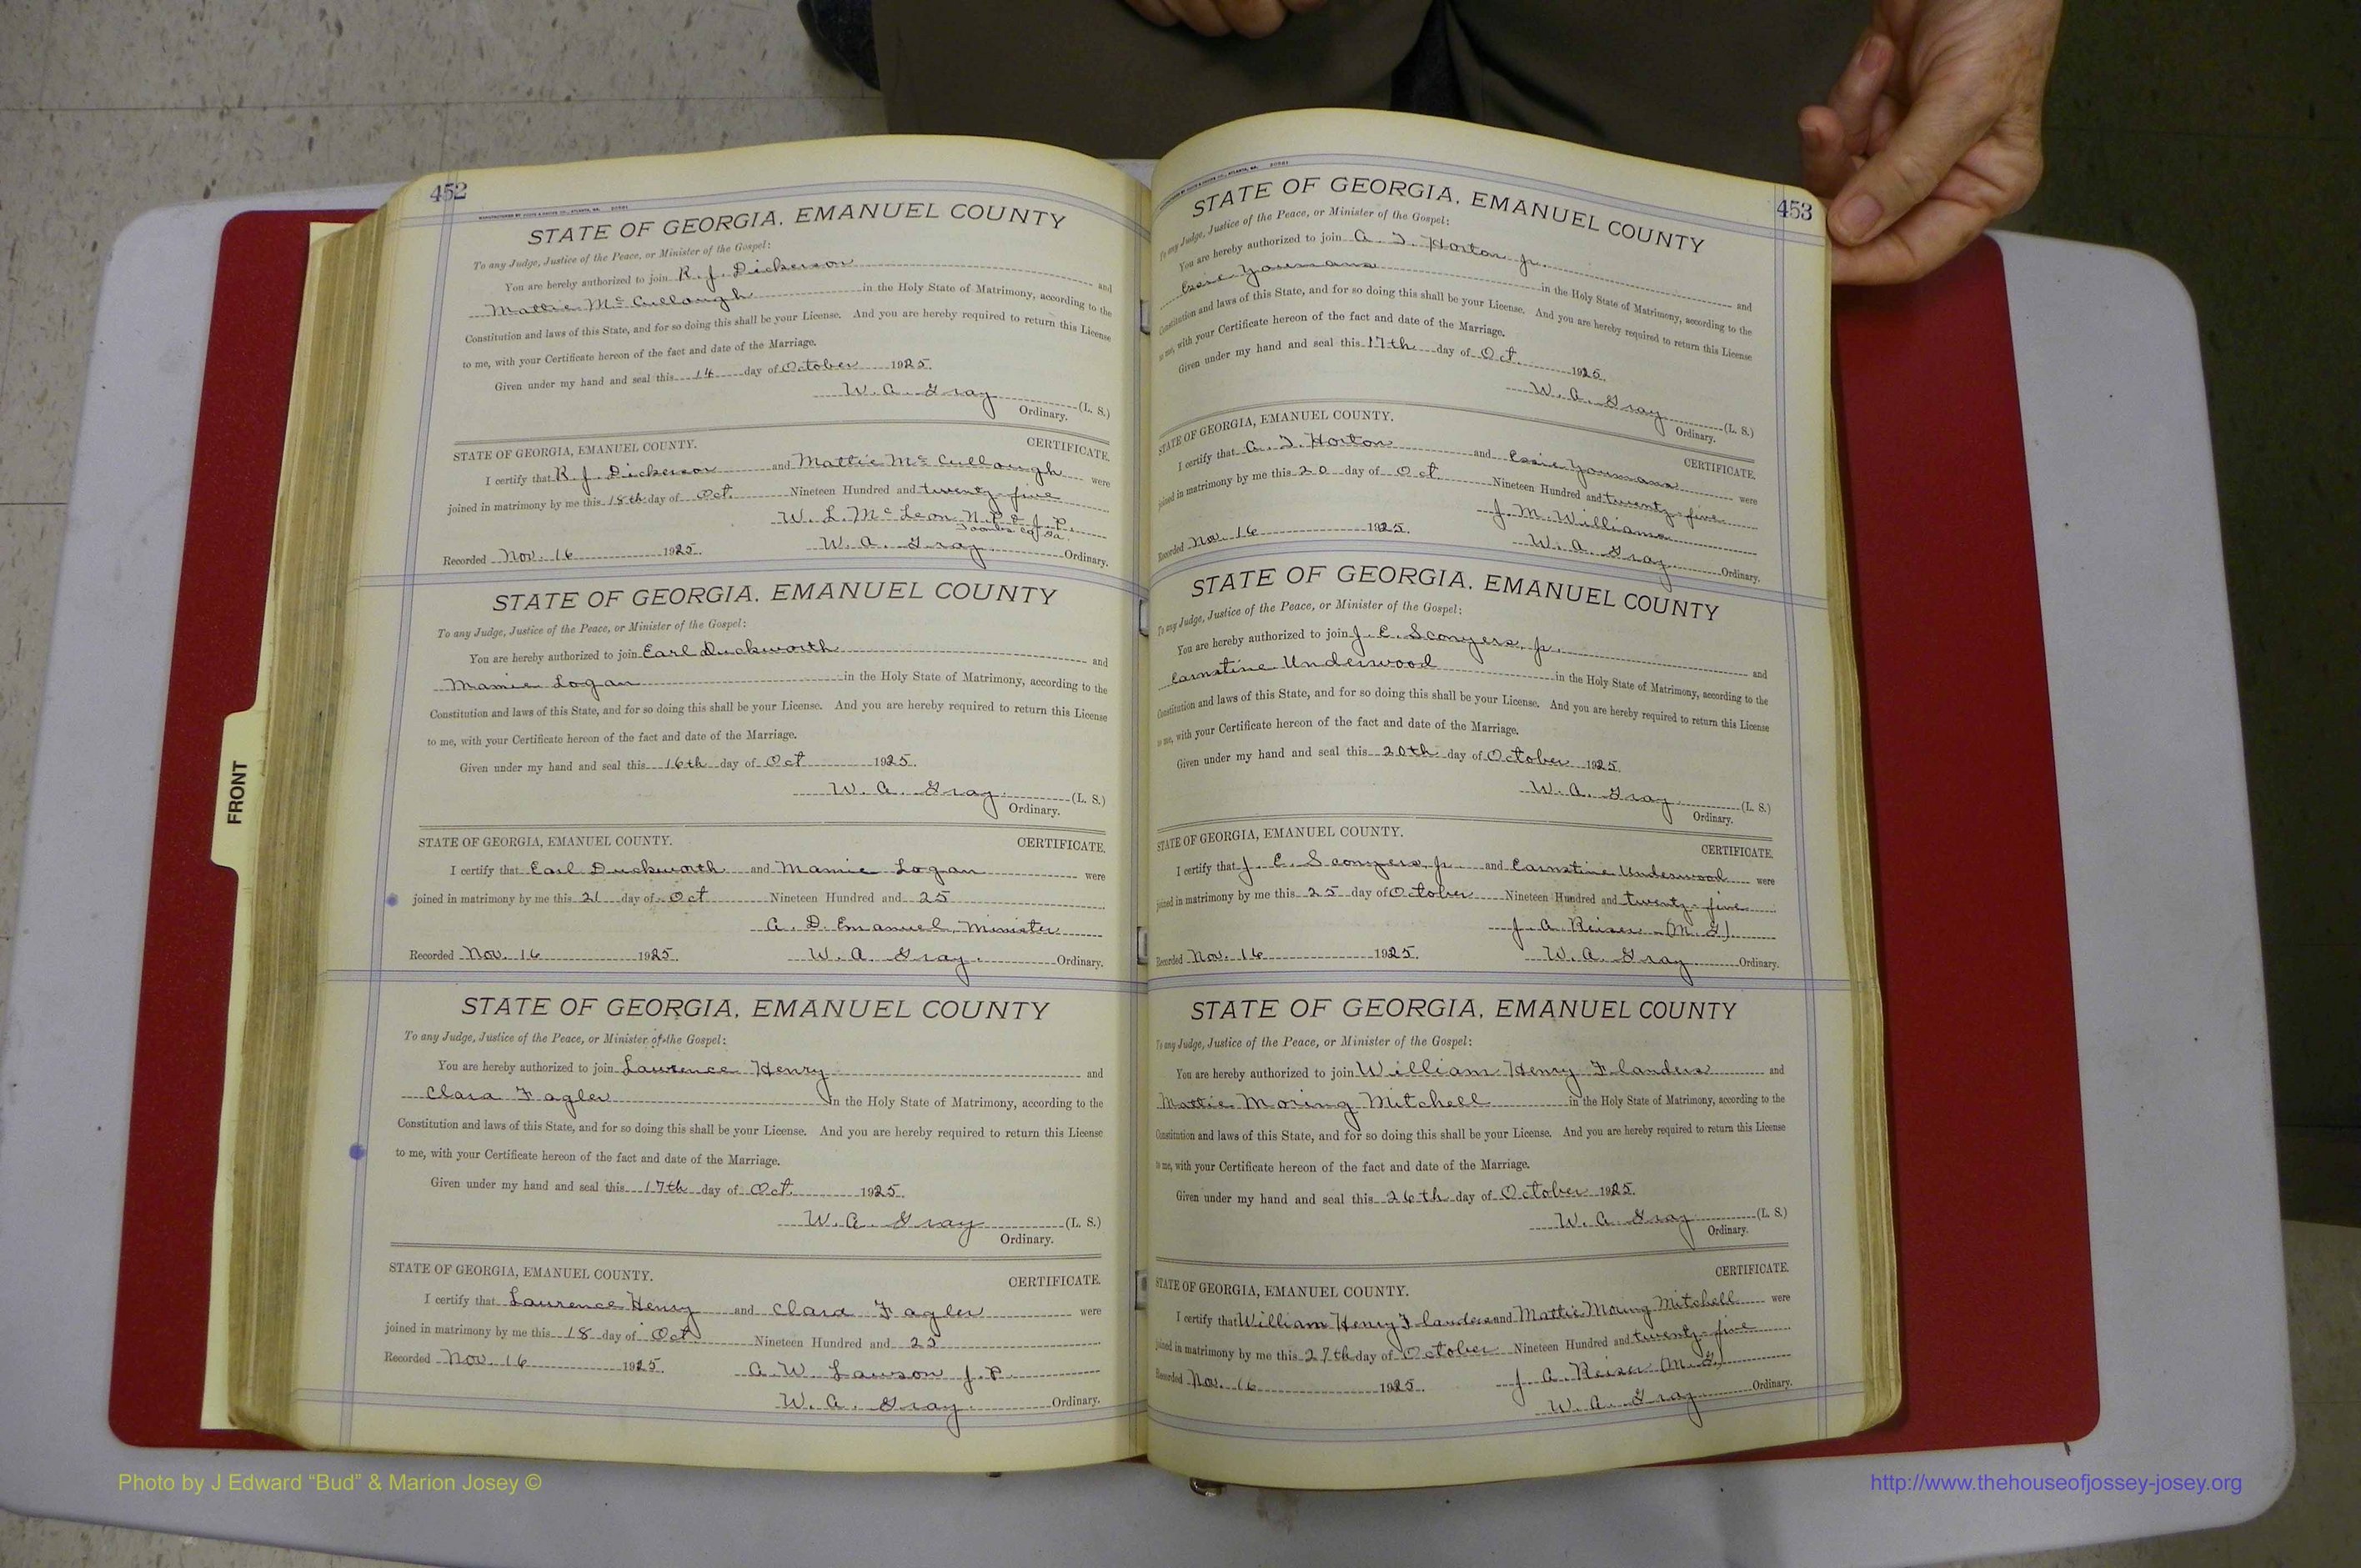 452
STATE OF GEORGIA, EMANUEL COUNTY
To any Judge, Justice of the Peace, or Minister of the Gospel:
You are hereby authorized to join R. J. Dickerson and
Mattie Mc Cullough in the Holy State of Matrimony, according to the
Constitution and laws of this State, and for so doing this shall be your License. And you are hereby required to return this License
to me, with your Certificate hereon of the fact and date of the Marriage.
Given under my hand and seal this 14 day of October 1925.
W. A. Gray (L. S.)
Ordinary.
STATE OF GEORGIA, EMANUEL COUNTY. CERTIFICATE.
I certify that R. J. Dickerson and Mattie Mc Cullough were
joined in matrimony by me this 18th day of Oct. Nineteen Hundred and twenty-five
W. L. Mc Leon N.P. & J.P.
Toombs Co Ga.
Recorded Nov. 16 1925. W. A. Gray Ordinary.
STATE OF GEORGIA, EMANUEL COUNTY
To any Judge, Justice of the Peace, or Minister of the Gospel:
You are hereby authorized to join Earl Duckworth and
Mamie Logan in the Holy State of Matrimony, according to the
Constitution and laws of this State, and for so doing this shall be your License. And you are hereby required to return this License
to me, with your Certificate hereon of the fact and date of the Marriage.
Given under my hand and seal this 16th day of Oct 1925.
W. A. Gray (L. S.)
Ordinary.
STATE OF GEORGIA, EMANUEL COUNTY. CERTIFICATE.
I certify that Earl Duckworth and Mamie Logan were
joined in matrimony by me this 21 day of Oct Nineteen Hundred and 25
A. D. Emanuel, Minister
Recorded Nov. 16 1925. W. A. Gray. Ordinary.
STATE OF GEORGIA, EMANUEL COUNTY
To any Judge, Justice of the Peace, or Minister of the Gospel:
You are hereby authorized to join Laurence Henry and
Clara Fagler in the Holy State of Matrimony, according to the
Constitution and laws of this State, and for so doing this shall be your License. And you are hereby required to return this License
to me, with your Certificate hereon of the fact and date of the Marriage.
Given under my hand and seal this 17th day of Oct. 1925.
W. A. Gray (L. S.)
Ordinary.
STATE OF GEORGIA, EMANUEL COUNTY. CERTIFICATE.
I certify that Laurence Henry and Clara Fagler were
joined in matrimony by me this 18 day of Oct. Nineteen Hundred and 25
Recorded Nov. 16 1925. A. W. Lawson J. P.
W. A. Gray. Ordinary.
453
STATE OF GEORGIA, EMANUEL COUNTY
To any Judge, Justice of the Peace, or Minister of the Gospel:
You are hereby authorized to join A. T. Horton Jr. and
Essie Youmans in the Holy State of Matrimony, according to the
Constitution and laws of this State, and for so doing this shall be your License. And you are hereby required to return this License
to me, with your Certificate hereon of the fact and date of the Marriage.
Given under my hand and seal this 17th day of Oct. 1925.
W. A. Gray (L. S.)
Ordinary.
STATE OF GEORGIA, EMANUEL COUNTY. CERTIFICATE.
I certify that A. T. Horton and Essie Youmans were
joined in matrimony by me this 20 day of Oct. Nineteen Hundred and twenty-five
J. M. Williams
Recorded Nov. 16 1925. W. A. Gray Ordinary.
STATE OF GEORGIA, EMANUEL COUNTY
To any Judge, Justice of the Peace, or Minister of the Gospel:
You are hereby authorized to join J. E. Sconyers, Jr. and
Earnstine Underwood in the Holy State of Matrimony, according to the
Constitution and laws of this State, and for so doing this shall be your License. And you are hereby required to return this License
to me, with your Certificate hereon of the fact and date of the Marriage.
Given under my hand and seal this 20th day of October 1925.
W. A. Gray (L. S.)
Ordinary.
STATE OF GEORGIA, EMANUEL COUNTY. CERTIFICATE.
I certify that J. E. Sconyers, Jr and Earnstine Underwood were
joined in matrimony by me this 25 day of October Nineteen Hundred and twenty-five
J. A. Reiser (M. G.)
Recorded Nov. 16 1925. W. A. Gray Ordinary.
STATE OF GEORGIA, EMANUEL COUNTY
To any Judge, Justice of the Peace, or Minister of the Gospel:
You are hereby authorized to join William Henry Flanders and
Mattie Moring Mitchell in the Holy State of Matrimony, according to the
Constitution and laws of this State, and for so doing this shall be your License. And you are hereby required to return this License
to me, with your Certificate hereon of the fact and date of the Marriage.
Given under my hand and seal this 26th day of October 1925.
W. A. Gray (L. S.)
Ordinary.
STATE OF GEORGIA, EMANUEL COUNTY. CERTIFICATE.
I certify that William Henry Flanders and Mattie Moring Mitchell were
joined in matrimony by me this 27th day of October Nineteen Hundred and twenty-five
Recorded Nov. 16 1925. J. A. Reiser (M. G.)
W. A. Gray Ordinary.
FRONT
Photo by J Edward “Bud” & Marion Josey ©
http://www.thehouseofjossey-josey.org